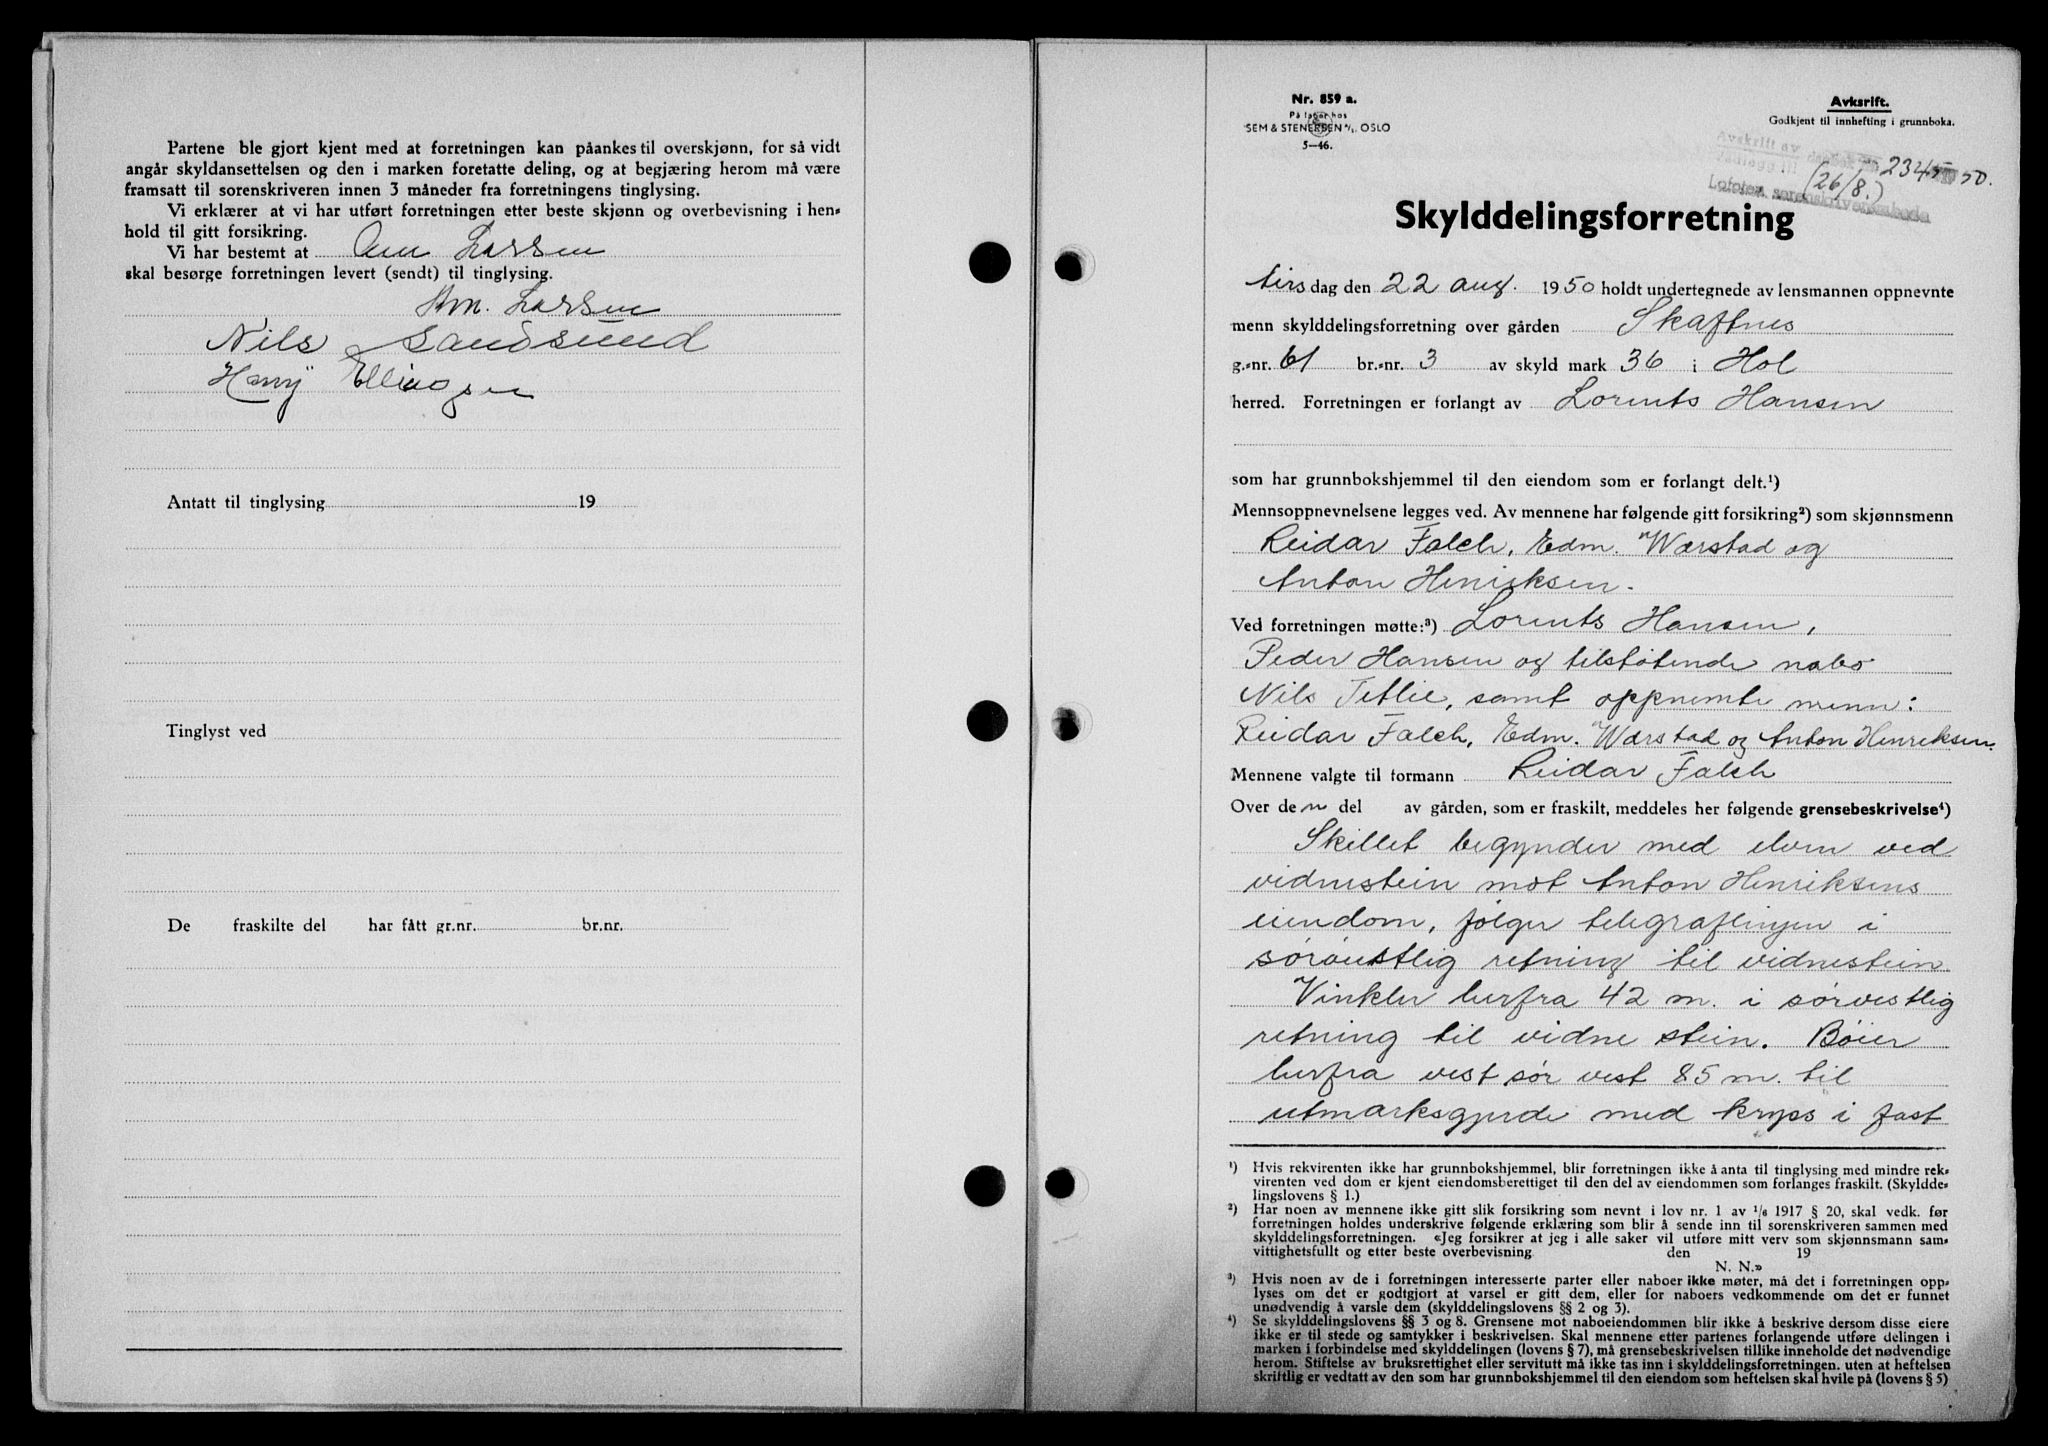 Partene ble gjort kjent med at forretningen kan påankes til overskjønn, for så vidt
angår skyldansettelsen og den i marken foretatte deling, og at begjæring herom må være
framsatt til sorenskriveren innen 3 måneder fra forretningens tinglysing.
Vi erklærer at vi har utført forretningen etter beste skjønn og overbevisning i hen=
hold til gitt forsikring.
Vi har bestemt at Larsen
skal besørge forretningen levert (sendt) til tinglysing.
Larsen
Nils Sandsund
Harry Ellingsen
Antatt til tinglysing 19
Tinglyst ved
De fraskilte del har fått gr.nr. br.nr.
Nr. 859 a.
På lager hos
SEM & STENERSEN A/S, OSLO
5—46.
Avksrift.
Godkjent til innhefting i grunnboka.
Avskrift av dagbok nr. 2345 1950.
Vedlegg til (26/8.)
Lofoten sorenskriverembede
Skylddelingsforretning
tirsdag den 22 aug. 1950 holdt undertegnede av lensmannen oppnevnte
menn skylddelingsforretning over gården Skaftnes
g.=nr. 61 br.=nr. 3 av skyld mark 36 i Hol
herred. Forretningen er forlangt av Lorents Hansen
som har grunnbokshjemmel til den eiendom som er forlangt delt.¹)
Mennsoppnevnelsene legges ved. Av mennene har følgende gitt forsikring²) som skjønnsmenn
Reidar Falch, Edm. Wærstad og
Anton Henriksen.
Ved forretningen møtte:³) Lorents Hansen,
Peder Hansen og tilstøtende nabo
Nils Tetlie, samt oppnemte menn:
Reidar Falch, Edm. Wærstad og Anton Henriksen.
Mennene valgte til formann Reidar Falch
Over den del av gården, som er fraskilt, meddeles her følgende grensebeskrivelse⁴)
Skillet begynder med elven ved
vidnestein mot Anton Henriksens
eiendom, følger telegraflinjen i
sørøustlig retning til vidnestein
Vinkler herfra 42 m. i sørvestlig
retning til vidne stein. Bøier
herfra vest sør vest 85 m. til
utmarksgjerde med kryss i fast
¹) Hvis rekvirenten ikke har grunnbokshjemmel, blir forretningen ikke å anta til tinglysing med mindre rek=
virenten ved dom er kjent eiendomsberettiget til den del av eiendommen som forlanges fraskilt. (Skyldde=
lingslovens § 1.)
²) Har noen av mennene ikke gitt slik forsikring som nevnt i lov nr. 1 av 1/6 1917 § 20, skal vedk. før
forretningen holdes underskrive følgende erklæring som blir å sende inn til sorenskriveren sammen med
skylddelingsforretningen. «Jeg forsikrer at jeg i alle saker vil utføre mitt verv som skjønnsmann sam=
vittighetsfullt og etter beste overbevisning den 19
N. N.»
³) Hvis noen av de i forretningen interesserte parter eller naboer ikke møter, må det i forretningen opp=
lyses om det er godtgjort at varsel er gitt dem, eller for naboers vedkommende om det er funnet
unødvendig å varsle dem (skylddelingslovens §§ 2 og 3).
⁴) Se skylddelingslovens §§ 3 og 8. Grensene mot naboeiendommen blir ikke å beskrive dersom disse eiere
ikke er til stede og samtykker i beskrivelsen. Skal mennene etter partenes forlangende utføre delingen i
marken i forbindelse med skylddelingen (lovens § 7), må grensebeskrivelsen tillike inneholde det nødvendige
herom. Stiftelse av bruksrettighet eller servitutt må ikke tas inn i skylddelingsforretningen, uten at heftelsen
skriftlig er vedtatt av den som har grunnbokshjemmel til den eiendom som heftelsen skal hvile på (lovens § 5)